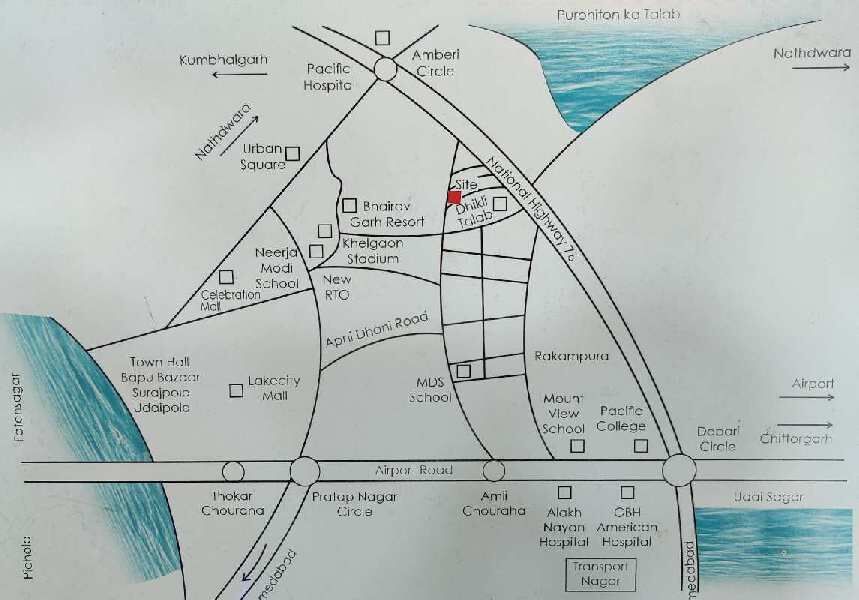 Purohiton ka Talab
Kumbhalgarh
Amberi
Circle
Nathdwara
Pacific
Hospital
Nathdwara
Urban
Square
National Highway 76
Site
Dhikli
Talab
Bhairav
Garh Resort
Khelgaon
Stadium
Neerja
Modi
School
New
RTO
Celebration
Mall
Apni Dhani Road
Town Hall
Bapu Bazaar
Surajpole
Udaipole
Lakecity
Mall
MDS
School
Rakampura
Fatehsagar
Mount
View
School
Pacific
College
Airport
Debari
Circle
Chittorgarh
Airport Road
Thokar
Chouraha
Pratap Nagar
Circle
Amli
Chouraha
Alakh
Nayan
Hospital
GBH
American
Hospital
Udai Sagar
Pichola
Transport
Nagar
medabad
medabad